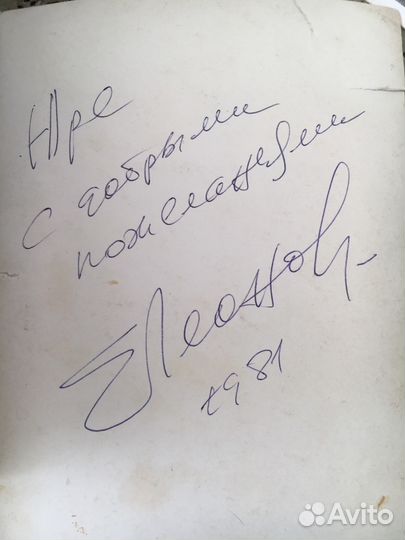 Юре
с добрыми
пожеланиями
ЕЛеонов.
1981
Avito